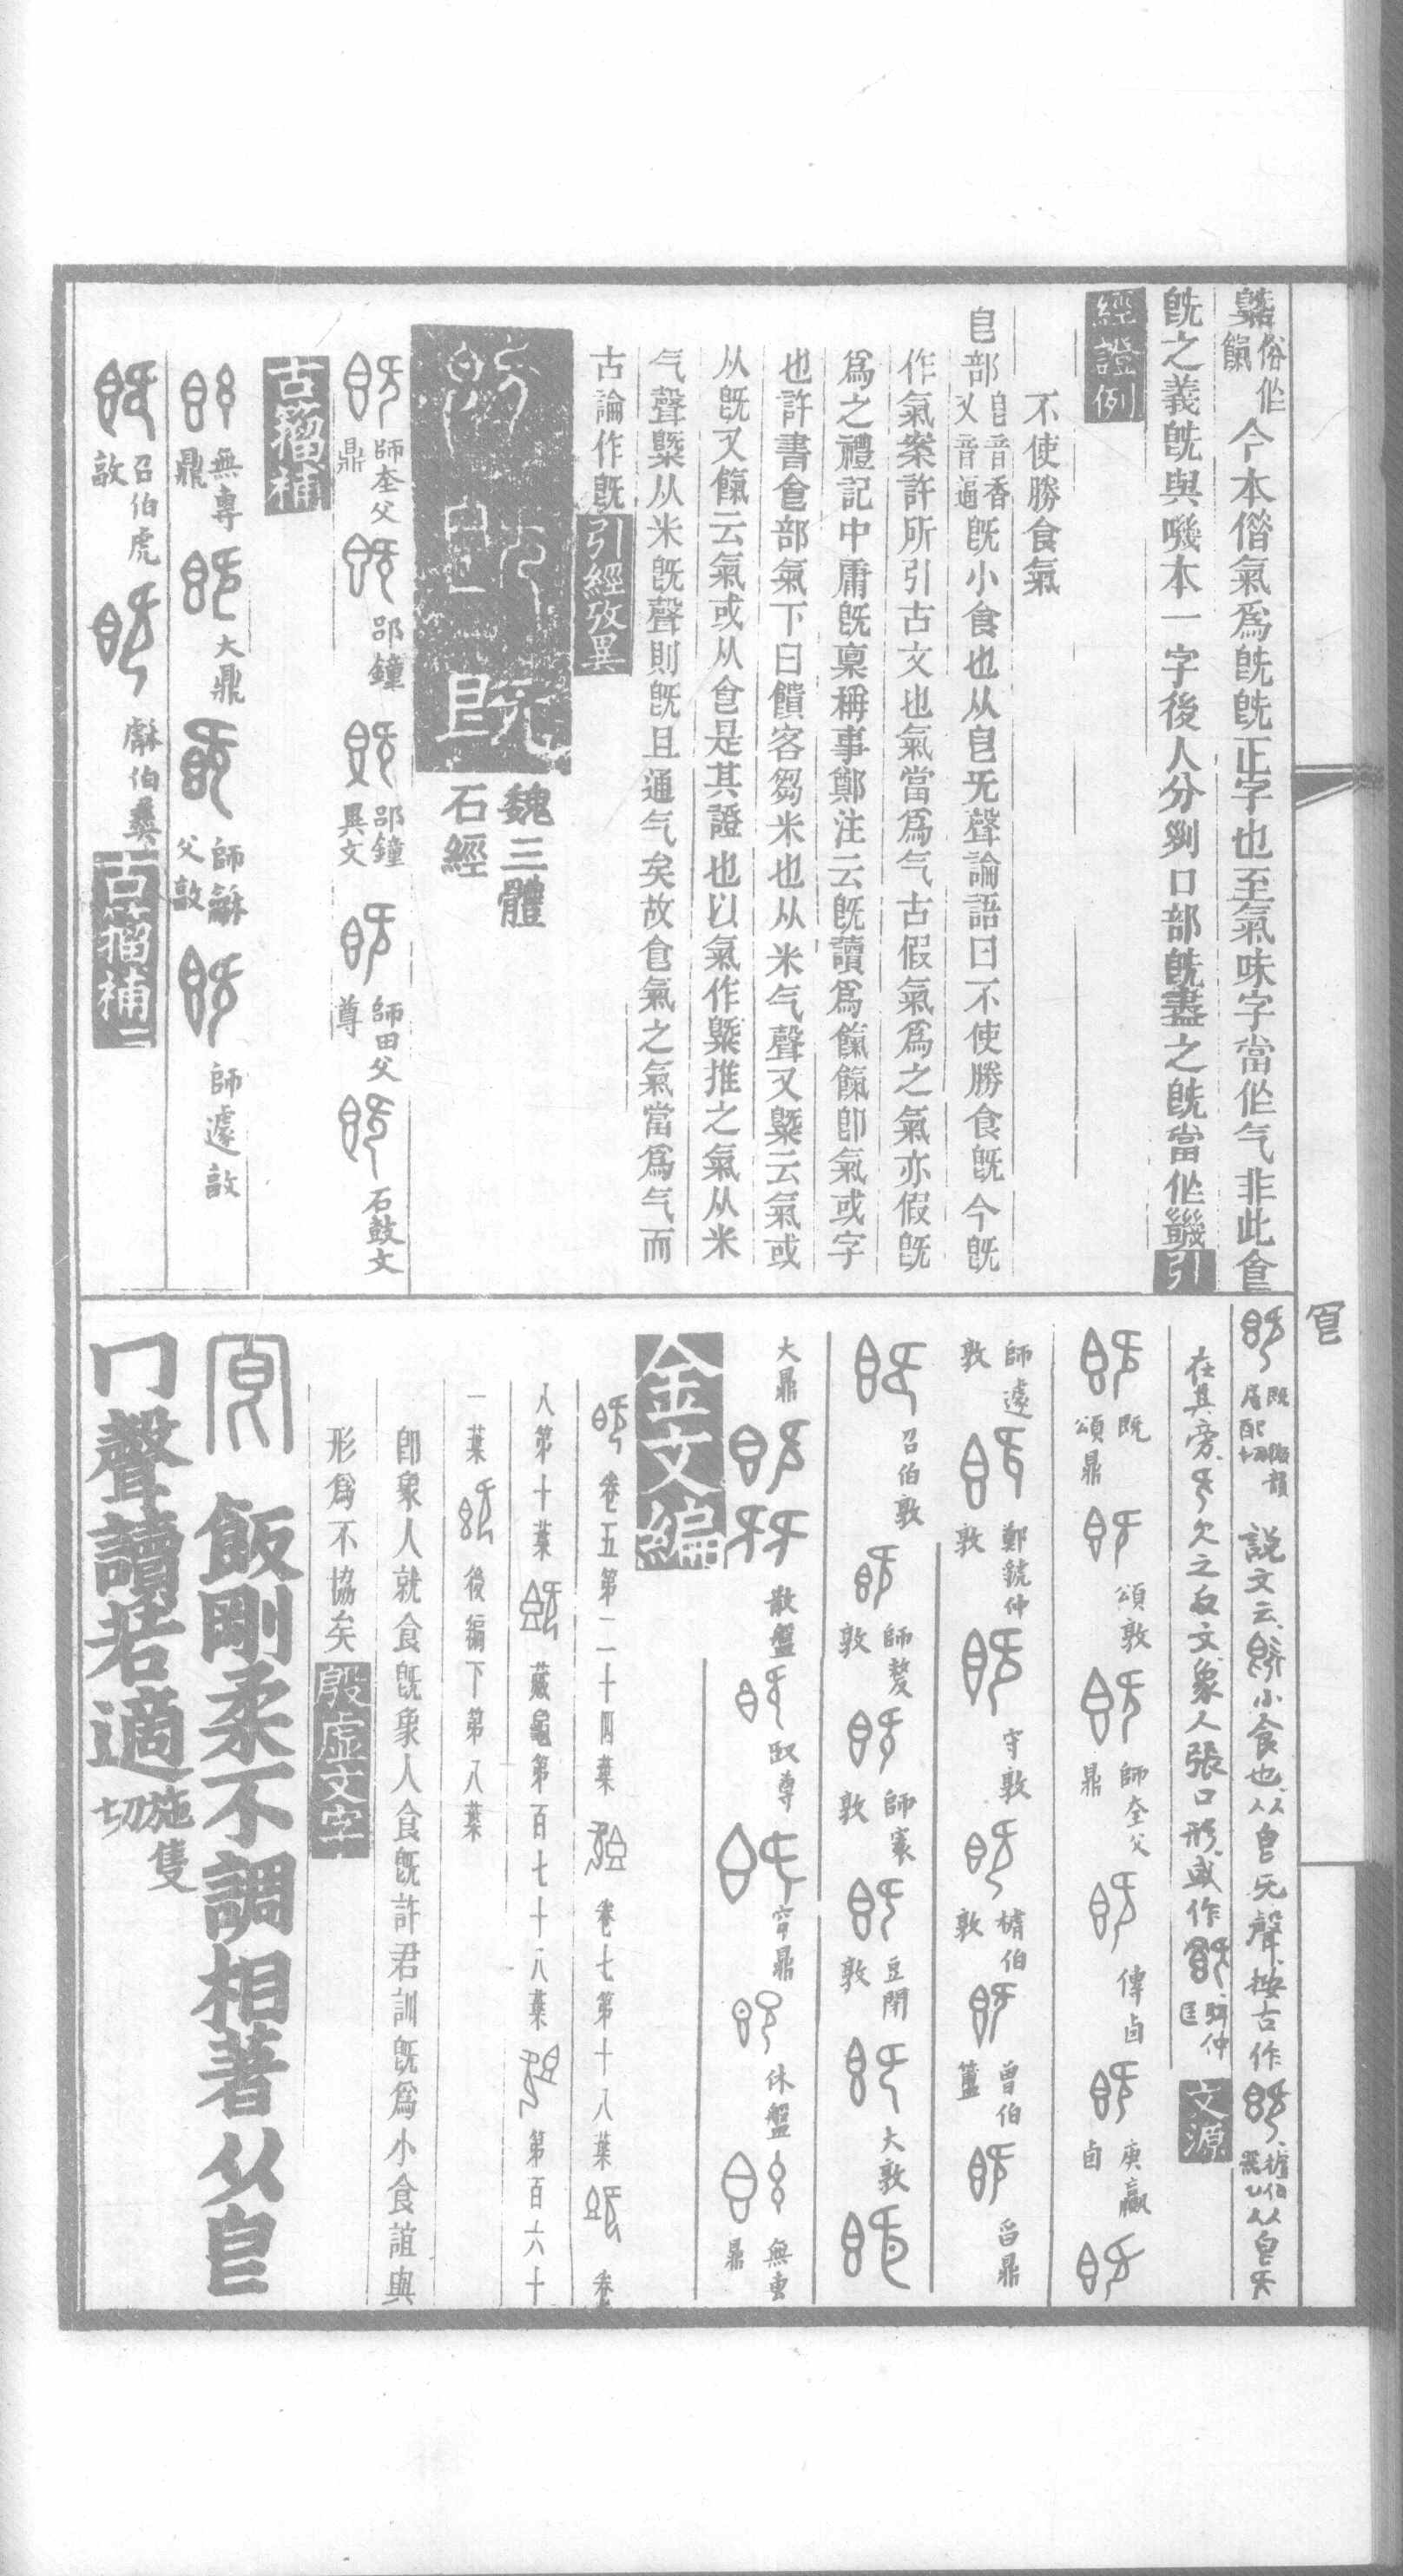 今本偕氣爲旣旣正字也至氣味字當作气非此食
旣之義旣與嘰本一字後人分別口部旣盡之旣當作
引
經證例
不使勝食氣
皀部皀音香又音逼旣小食也从皀旡聲論語曰不使勝食旣今旣
作氣案許所引古文也氣當爲气古假氣爲之氣亦假旣
爲之禮記中庸旣稟稱事鄭注云旣讀爲餼餼卽氣或字
也許書食部氣下曰饋客芻米也从米气聲又䊠云氣或
从旣又餼云氣或从食是其證也以氣作䊠推之氣从米
气聲䊠从米旣聲則旣且通气矣故食氣之氣當爲气而
古論作旣引經攷異
旣
魏三體
石經
師㚅父鼎
邵鐘
邵鐘異文
師田父尊
石鼓文
古籀補
無專鼎
大鼎
師龢父敦
師遽敦
召伯虎敦
伯彝
古籀補
皀
說文云小食也从皀旡聲按古作
在其旁欠之反文象人張口形或作
文源
旣
頌鼎
頌敦
師㚅父鼎
傳卣
庚嬴卣
師遽敦
鄭虢仲敦
守敦
伯敦
曾伯簠
舀鼎
召伯敦
師嫠敦
師㝨敦
豆閉敦
大敦
大鼎
散盤
㕞尊
休盤
無叀鼎
金文編
卷五第二十四葉
卷七第十八葉
卷
八第十葉
藏龜第百七十八葉
第百六十
一葉
後編下第八葉
卽象人就食旣象人食旣許君訓旣爲小食誼與
形爲不協矣殷虛文字
冟
飯剛柔不調相著从皀
冂聲讀若適施隻切